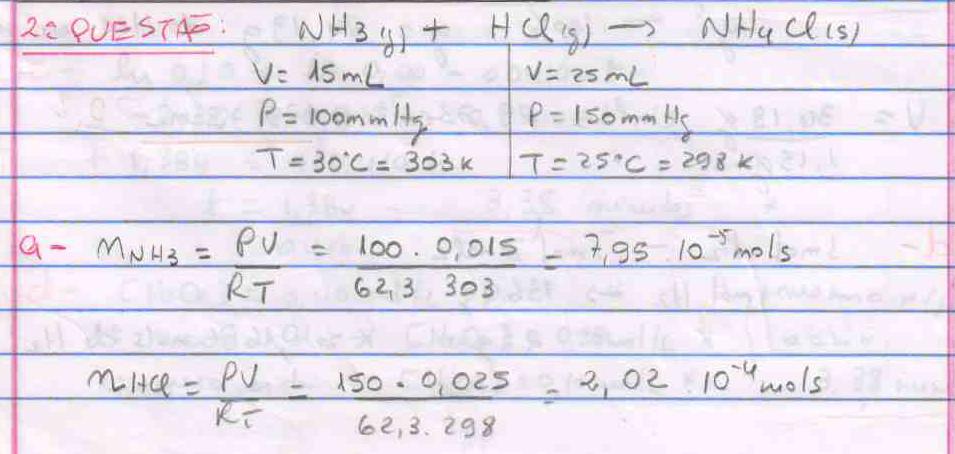 2ª QUESTÃO: NH3(g) + HCl(g) → NH4Cl(s)
V = 15mL V = 25mL
P = 100mmHg P = 150mmHg
T = 30°C = 303K T = 25°C = 298K
a- nNH3 = PV/RT = 100 . 0,015/62,3 303 = 7,95 10⁻⁵ mols
nHCl = PV/RT = 150 . 0,025/62,3 . 298 = 2,02 10⁻⁴ mols